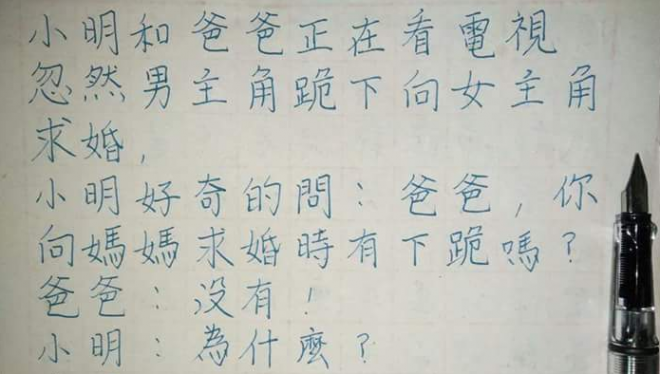 小明和爸爸正在看電視
忽然男主角跪下向女主角
求婚,
小明好奇的問：爸爸,你
向媽媽求婚時有下跪嗎?
爸爸：没有!
小明：為什麼?